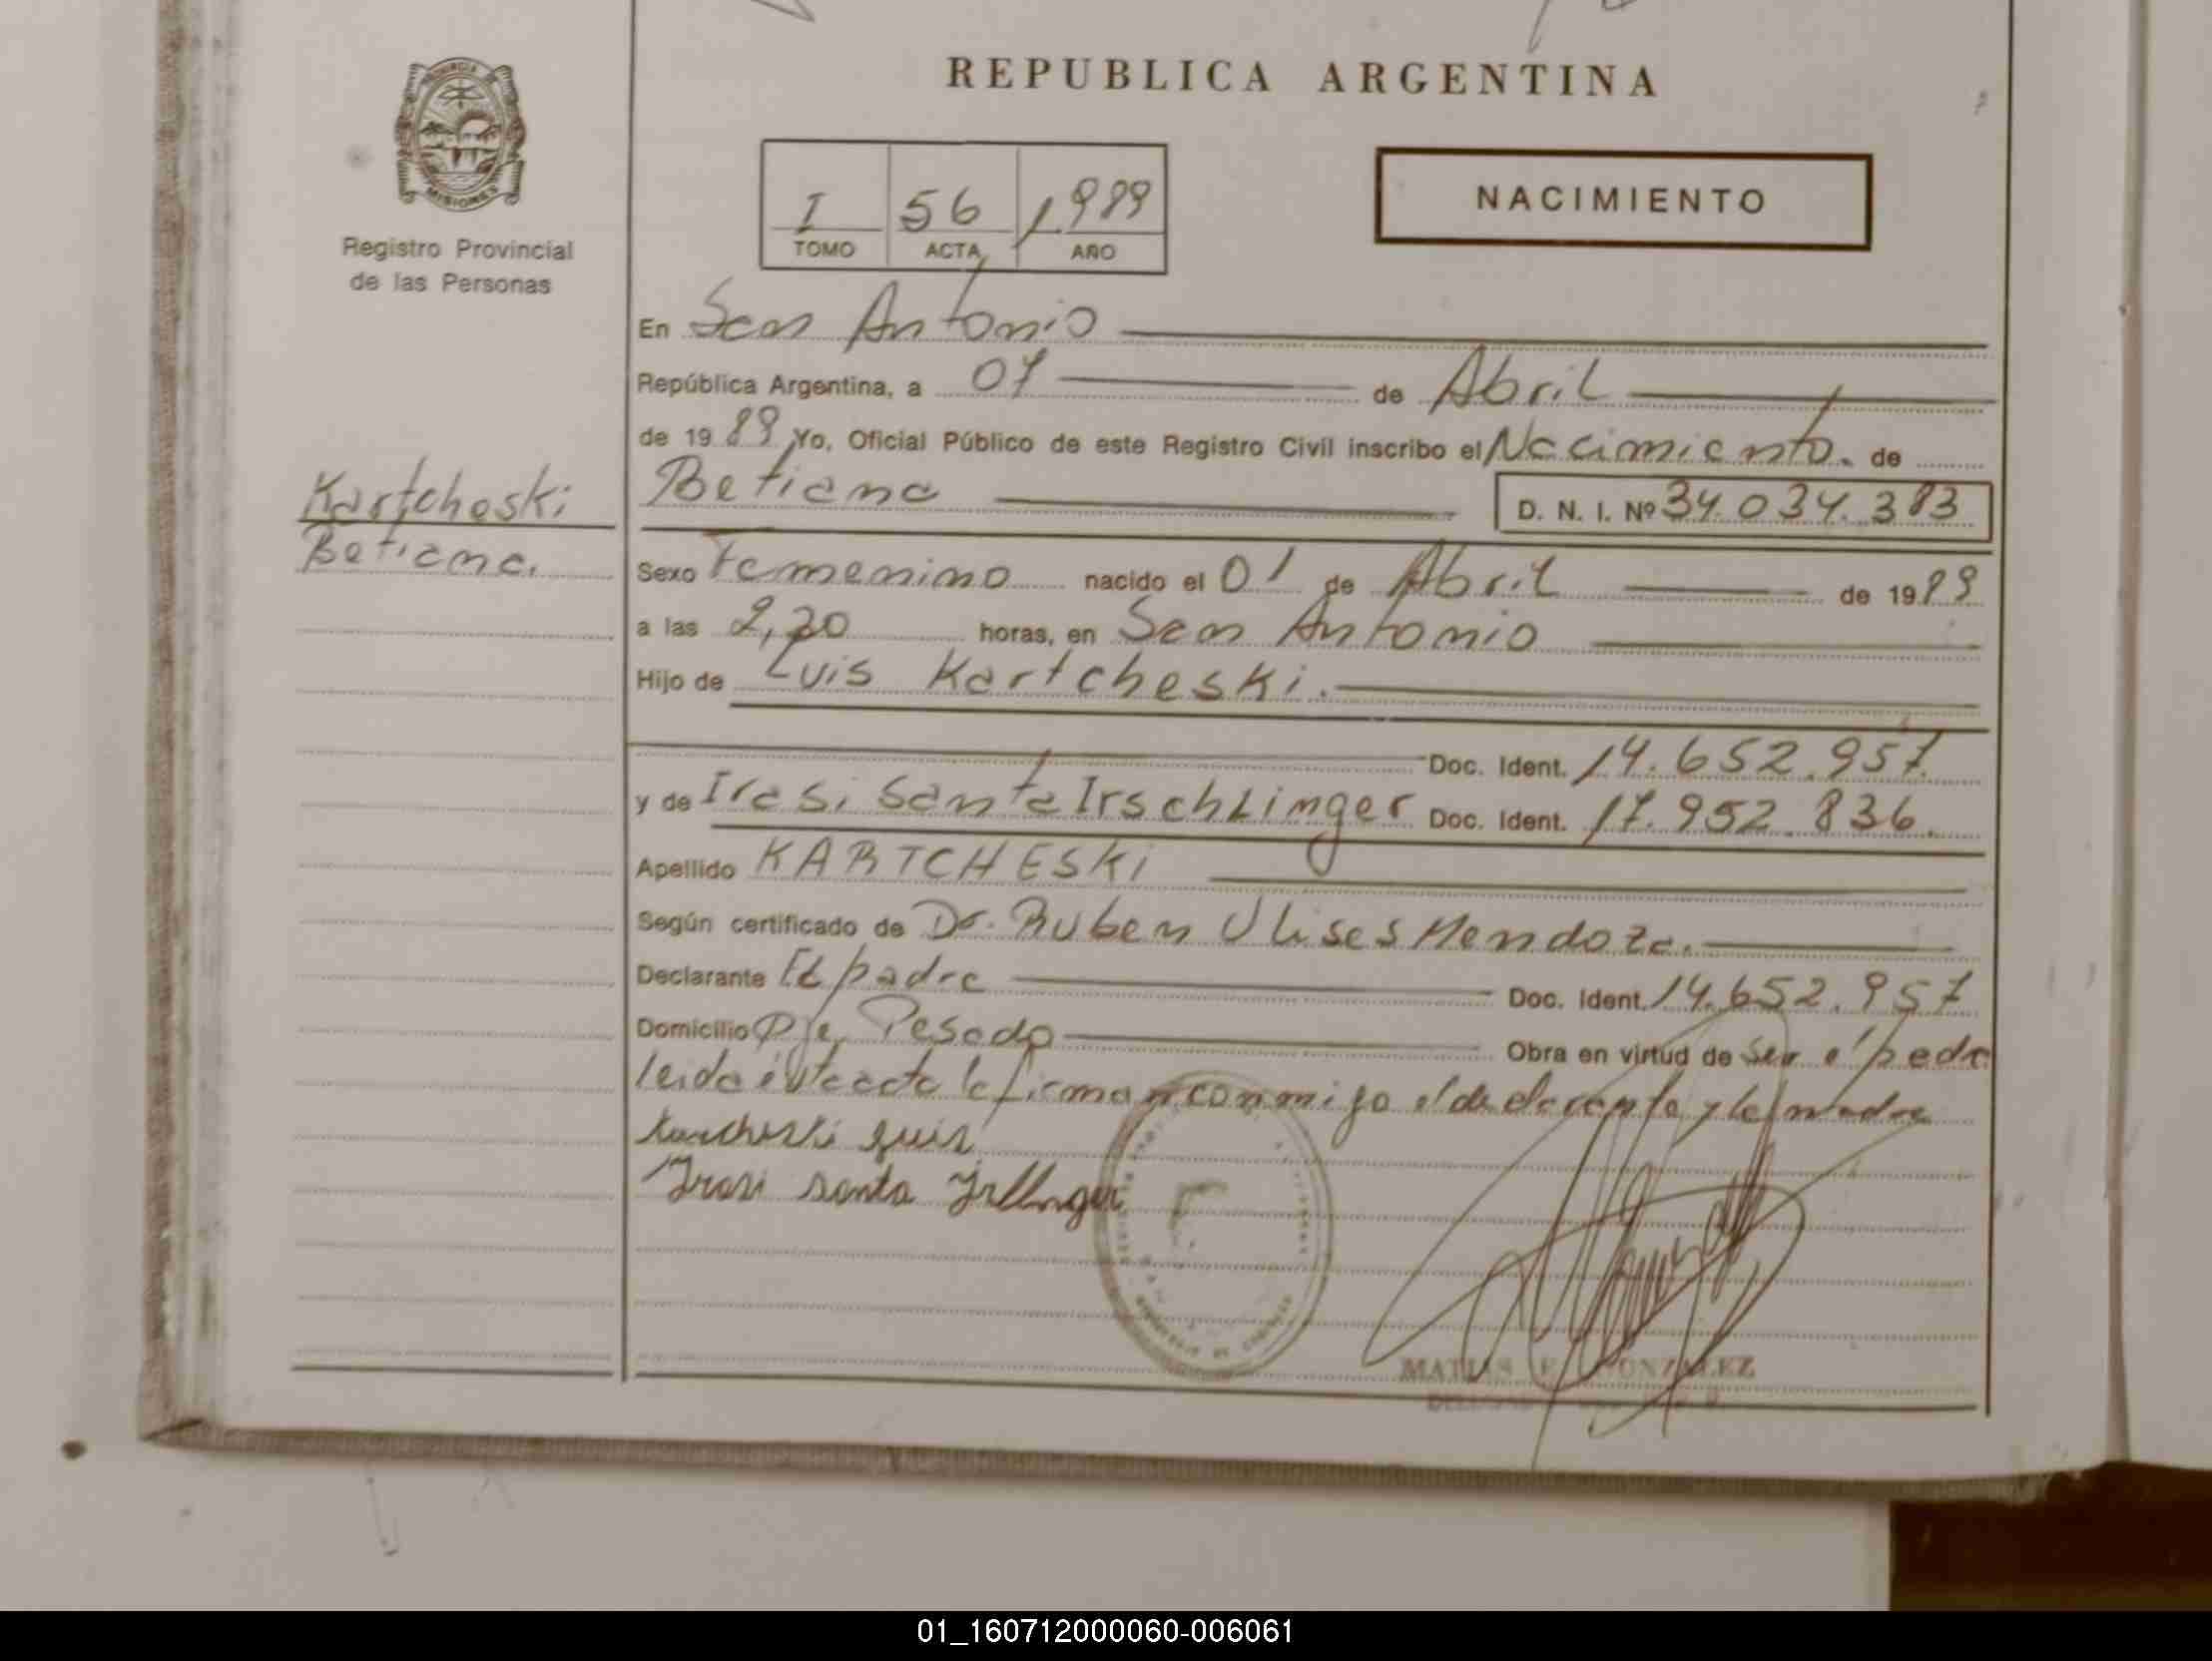 REPUBLICA ARGENTINA
PROVINCIA
MISIONES
Registro Provincial
de las Personas
I 56 1.989
TOMO ACTA AÑO
NACIMIENTO
En San Antonio
República Argentina, a 07 de Abril
de 1989 Yo, Oficial Público de este Registro Civil inscribo el Nacimiento. de
Kartcheski
Betiana.
Betiana D. N. I. Nº 34.034.383
Sexo Femenino nacido el 01 de Abril de 1989
a las 2,20 horas, en San Antonio
Hijo de Luis Kartcheski.
Doc. Ident. 14.652.957.
y de Irasi Santa Irschlinger Doc. Ident. 17.952.836.
Apellido KARTCHESKI
Según certificado de Dr. Ruben Ulises Mendoza.
Declarante El padre Doc. Ident. 14.652.957
Domicilio Pje. Pesado Obra en virtud de ser el padre
leida esta acta la firman conmigo el declarante y la madre
Luis
Irasi santa
MATIAS F. GONZALEZ
01_160712000060-006061